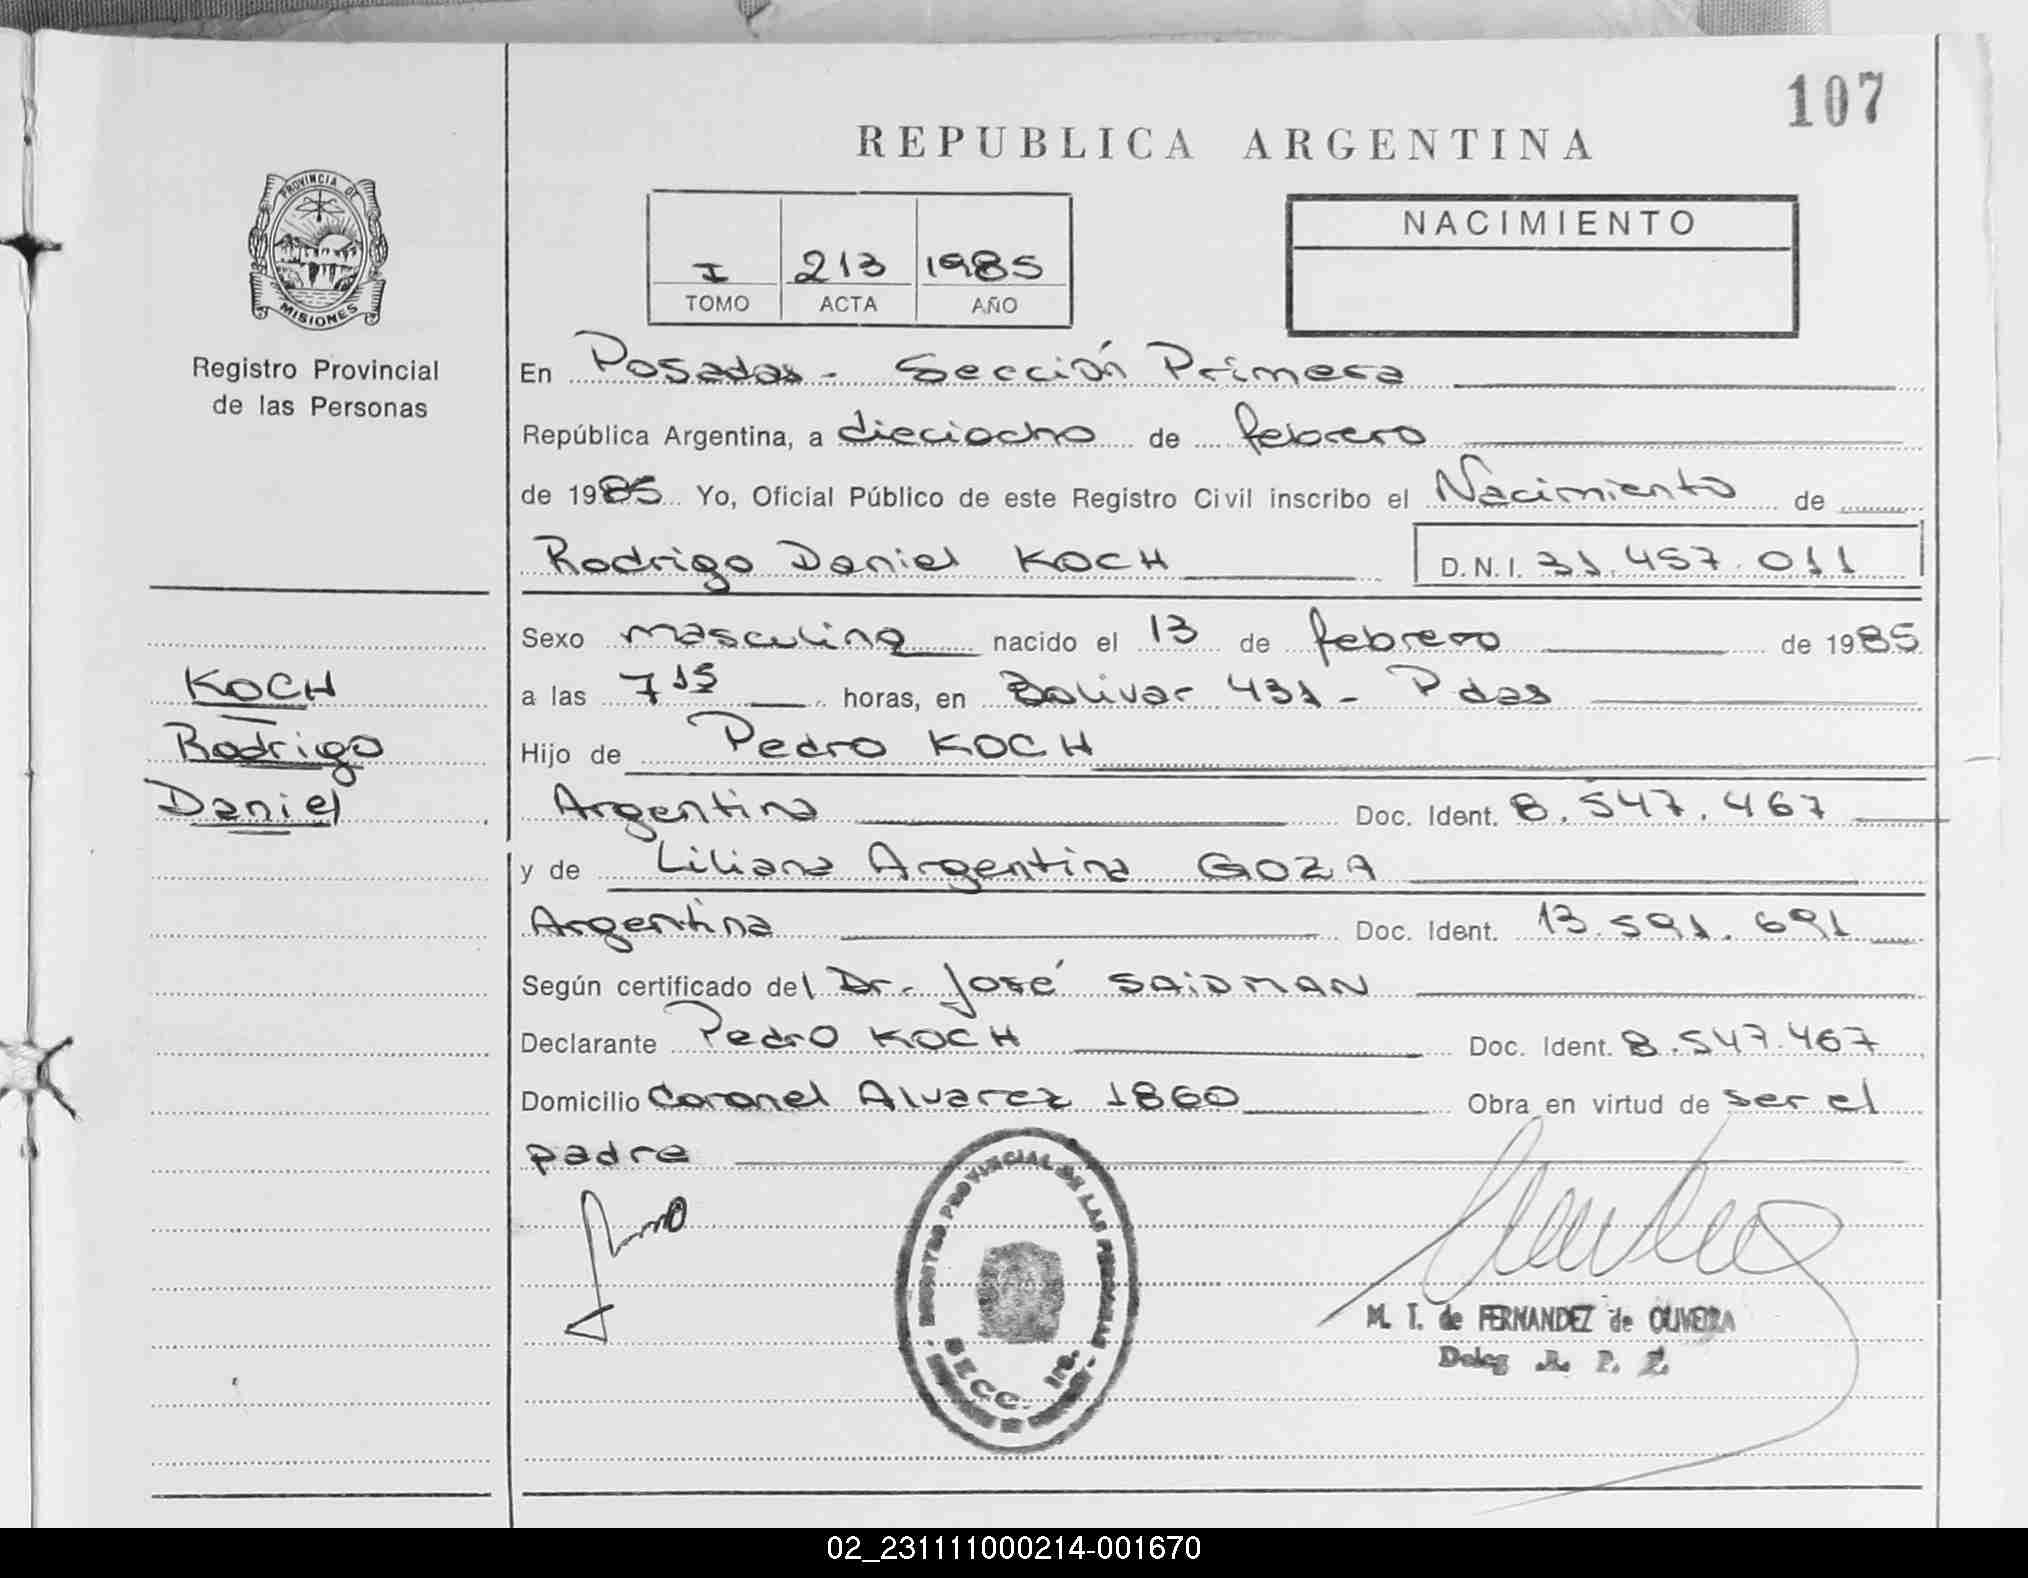 107
REPUBLICA ARGENTINA
PROVINCIA DE
MISIONES
Registro Provincial
de las Personas
I 213 1985
TOMO ACTA AÑO
NACIMIENTO
En Posadas - Sección Primera
República Argentina, a dieciocho de febrero
de 1985 Yo, Oficial Público de este Registro Civil inscribo el Nacimiento de
Rodrigo Daniel KOCH D.N.I. 31.457.011
Sexo masculino nacido el 13 de febrero de 1985
KOCH
Rodrigo
Daniel
a las 7 15 horas, en Bolivar 431 - Pdas
Hijo de Pedro KOCH
Argentina Doc. Ident. 8.547.467
y de Liliana Argentina GOZA
Argentina Doc. Ident. 13.591.691
Según certificado del Dr. José SAIDMAN
Declarante Pedro KOCH Doc. Ident. 8.547.467
Domicilio Coronel Alvarez 1860 Obra en virtud de ser el
padre
REGISTRO PROVINCIAL DE LAS PERSONAS
SECC. 1ra.
M. T. de FERNANDEZ de OLIVEIRA
Deleg R. P.
02_231111000214-001670